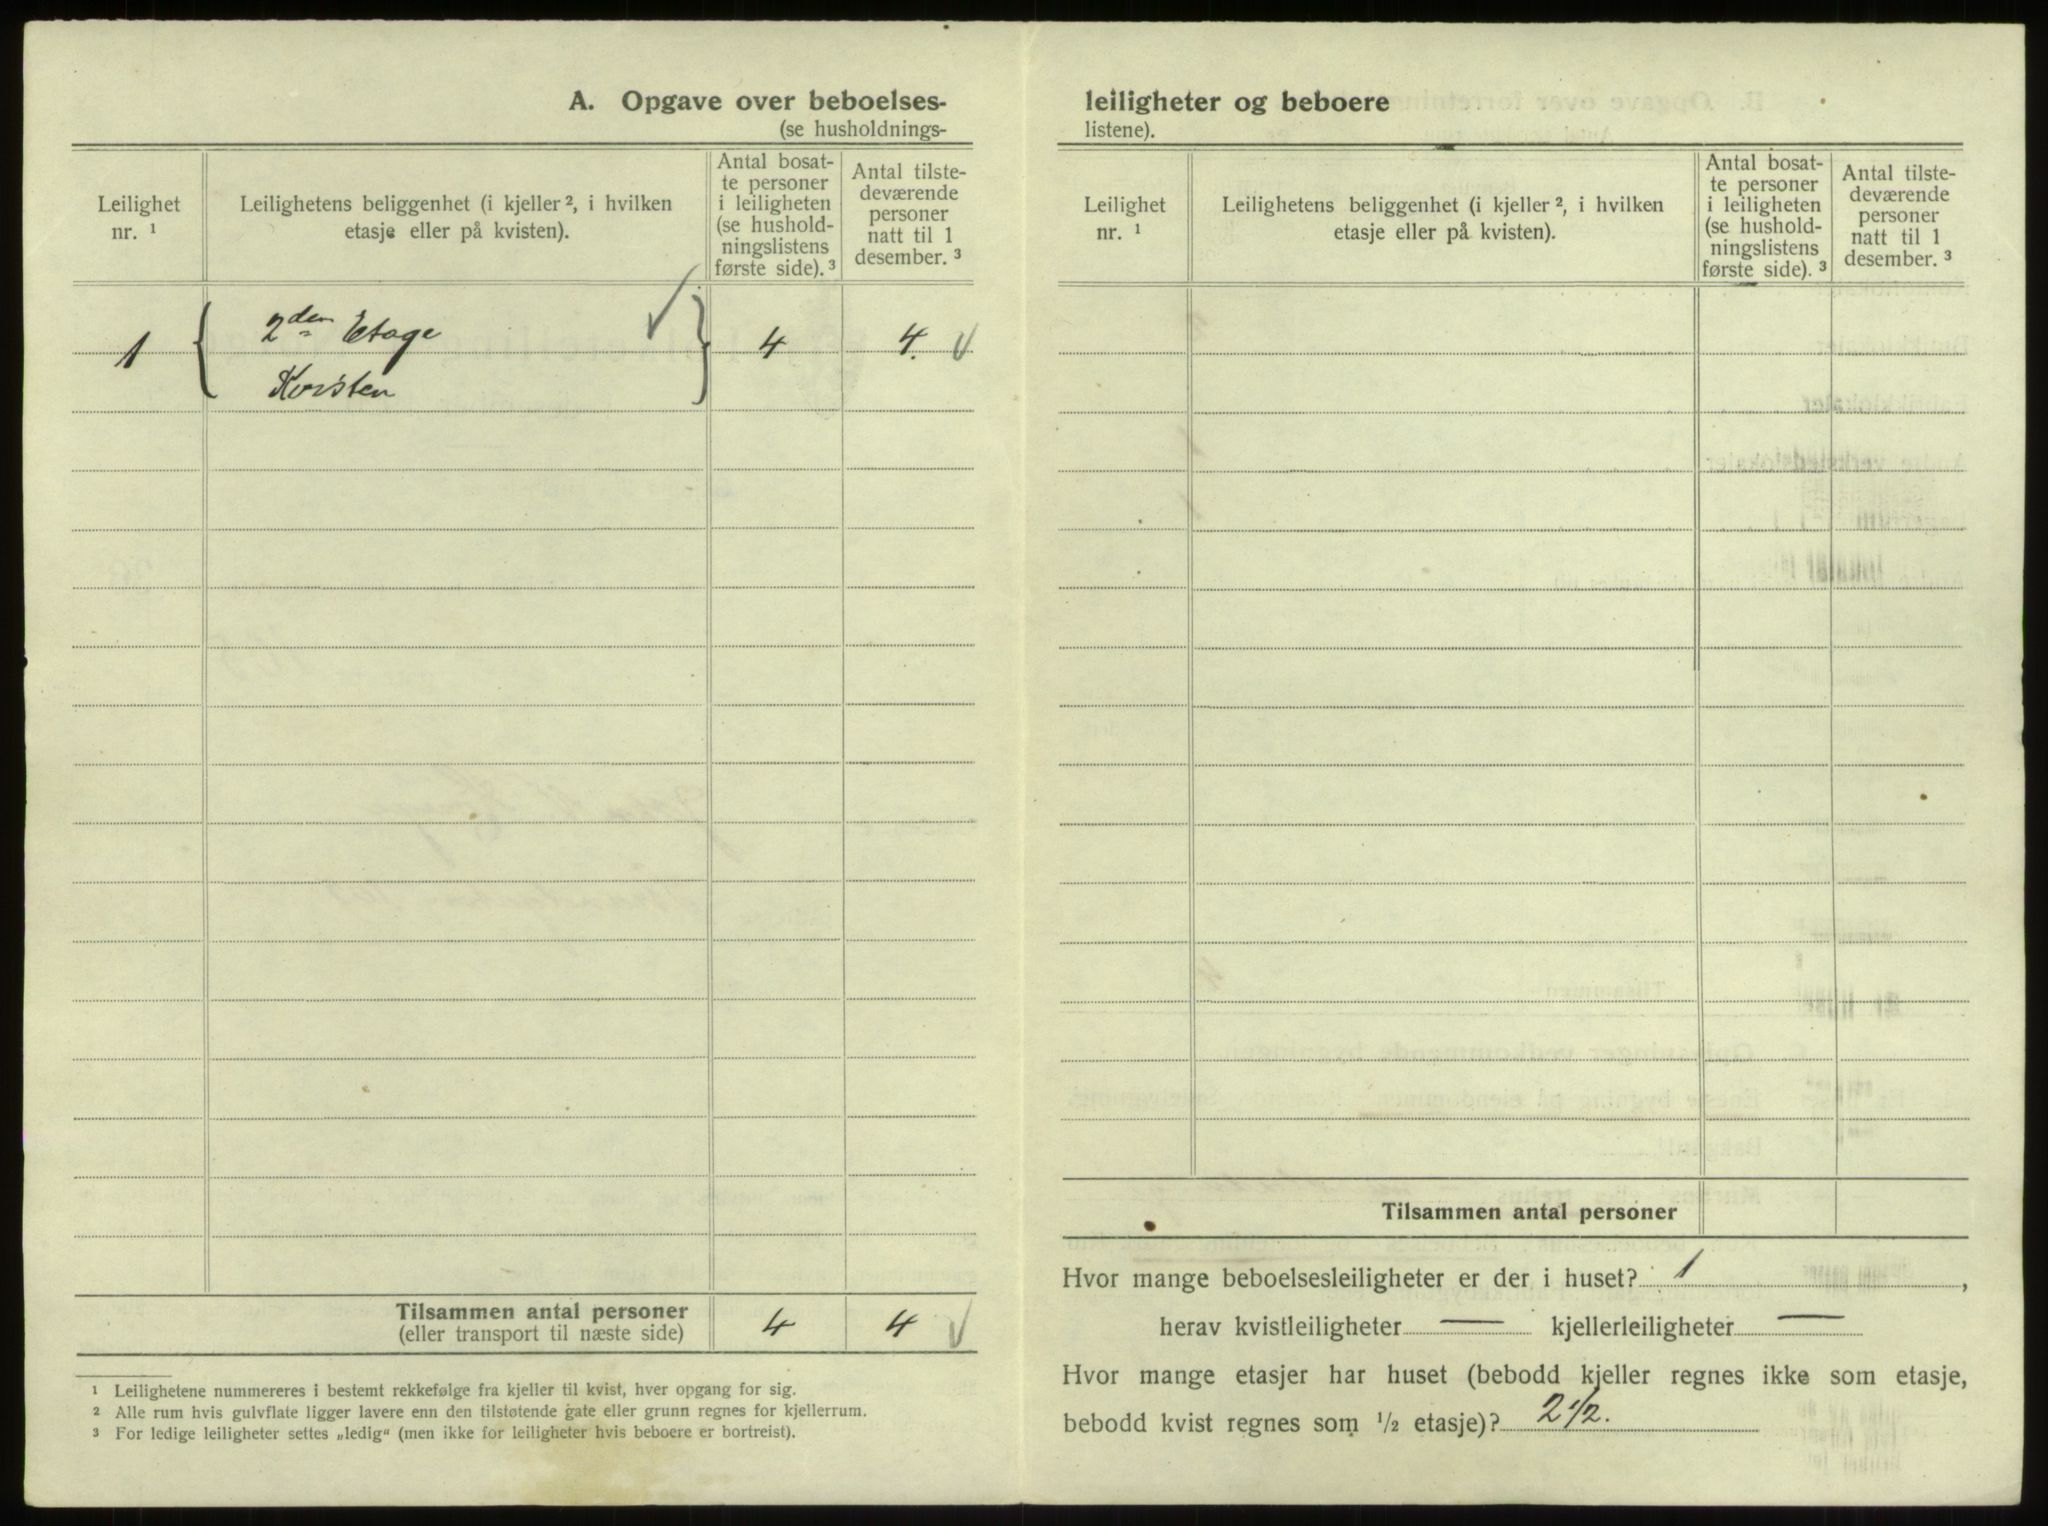 A. Opgave over beboelses-
(se husholdnings-
Leilighet
nr. ¹
Leilighetens beliggenhet (i kjeller ², i hvilken
etasje eller på kvisten).
Antal bosat-
te personer
i leiligheten
(se hushold-
ningslistens
første side). ³
Antal tilste-
deværende
personer
natt til 1
desember. ³
1 { 2den Etage } 4 4.
Kvisten
Tilsammen antal personer
(eller transport til næste side)
4 4
¹ Leilighetene nummereres i bestemt rekkefølge fra kjeller til kvist, hver opgang for sig.
² Alle rum hvis gulvflate ligger lavere enn den tilstøtende gate eller grunn regnes for kjellerrum.
³ For ledige leiligheter settes „ledig“ (men ikke for leiligheter hvis beboere er bortreist).
leiligheter og beboere
listene).
Leilighet
nr. ¹
Leilighetens beliggenhet (i kjeller ², i hvilken
etasje eller på kvisten).
Antal bosat-
te personer
i leiligheten
(se hushold-
ningslistens
første side). ³
Antal tilste-
deværende
personer
natt til 1
desember. ³
Tilsammen antal personer
Hvor mange beboelsesleiligheter er der i huset? 1,
herav kvistleiligheter — kjellerleiligheter —
Hvor mange etasjer har huset (bebodd kjeller regnes ikke som etasje,
bebodd kvist regnes som ½ etasje)? 2 1/2.